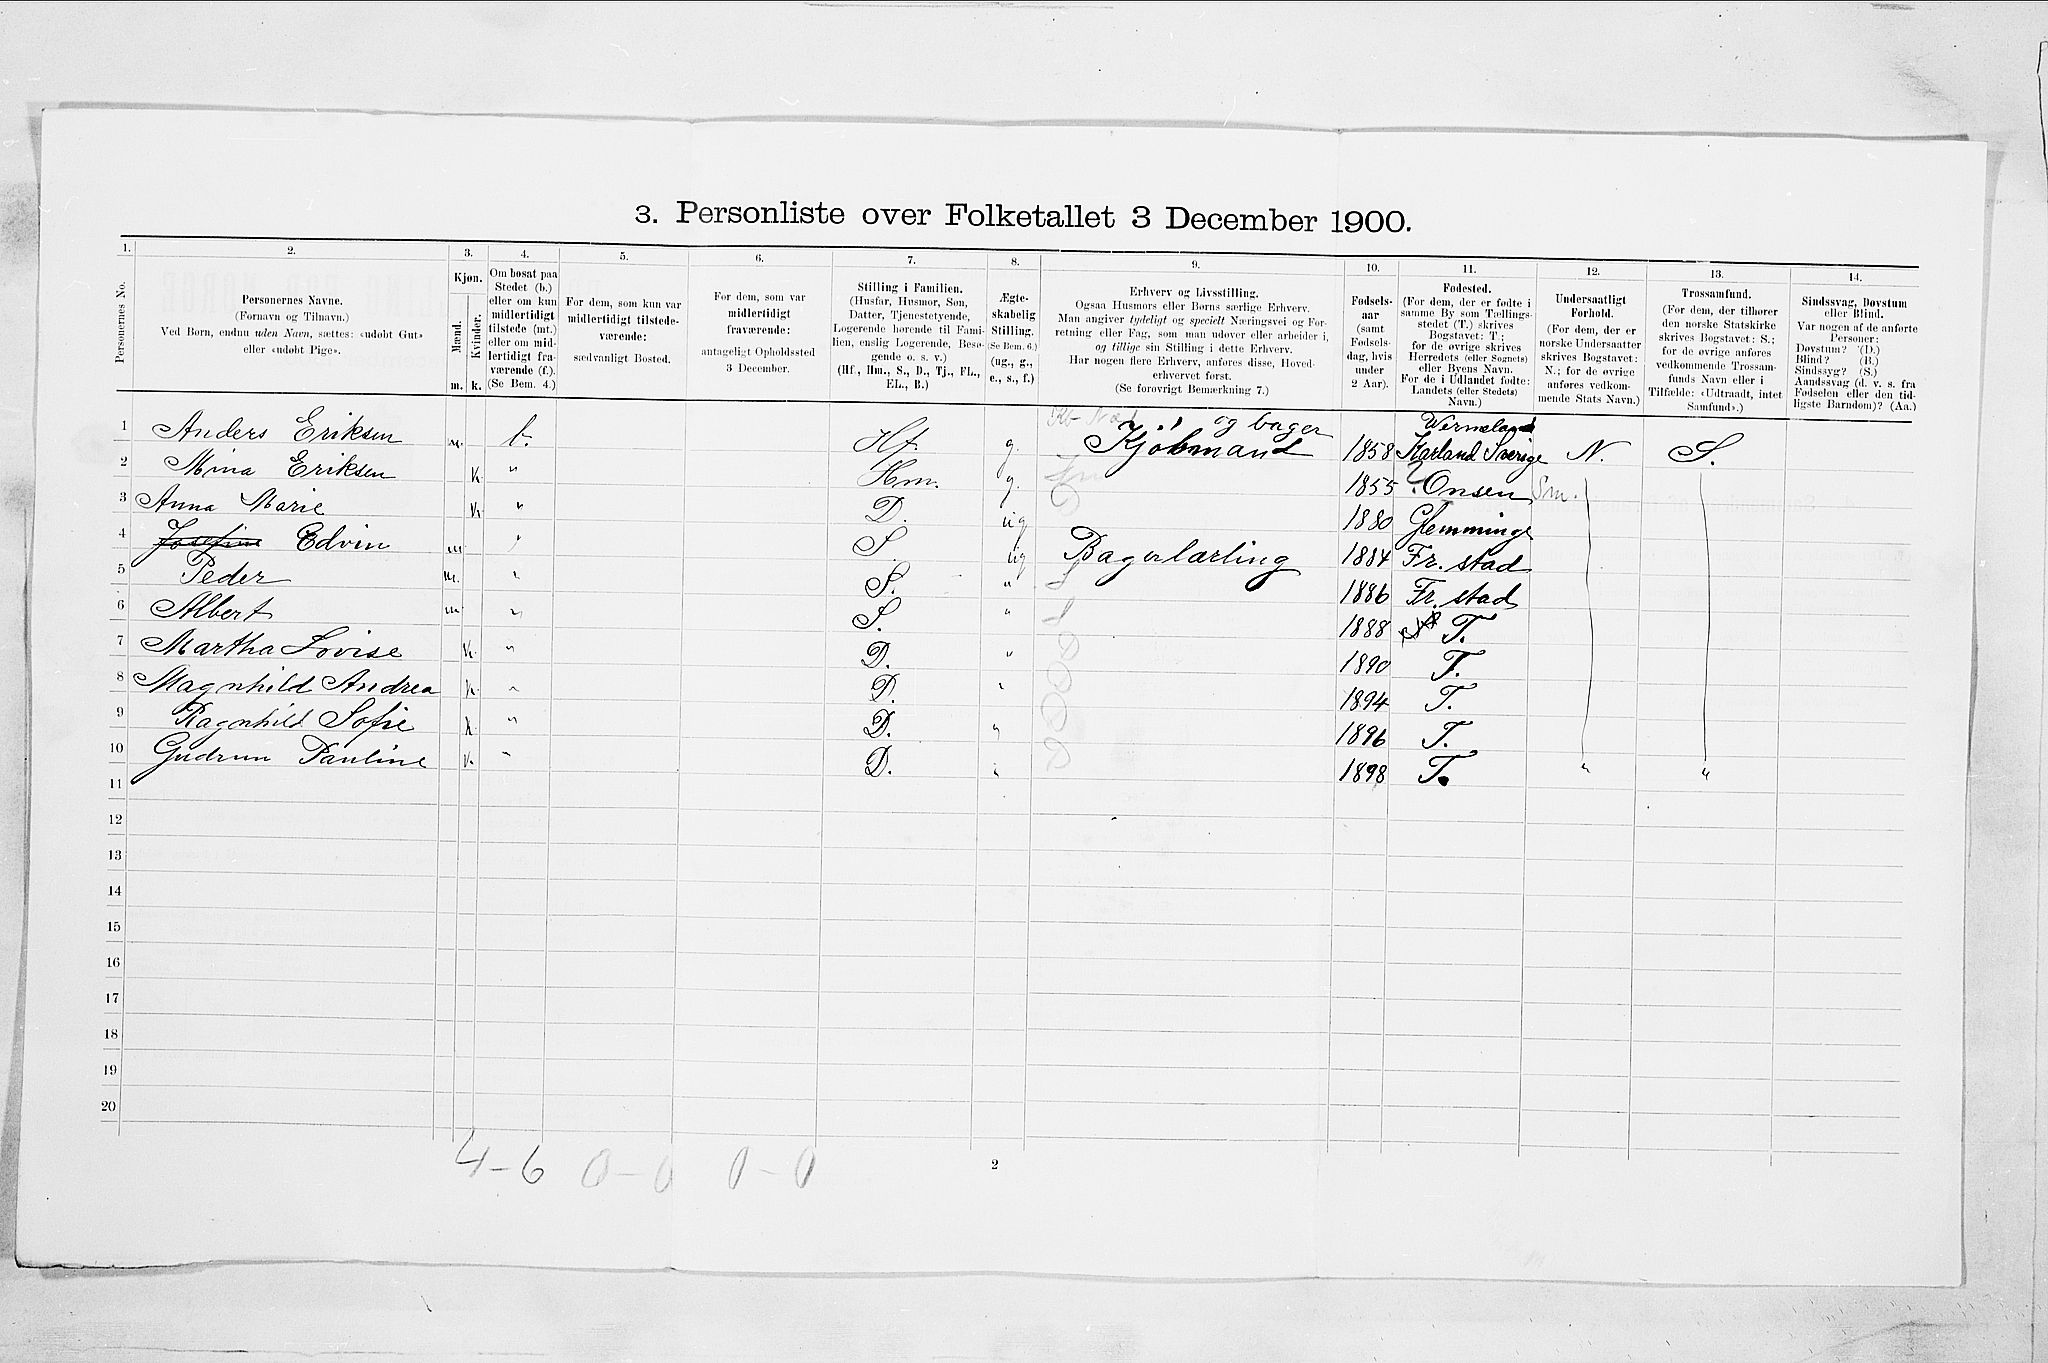 3. Personliste over Folketallet 3 December 1900.
1. 2. 3. 4. 5. 6. 7. 8. 9. 10. 11. 12. 13. 14.
Personernes No.
Personernes Navne.
(Fornavn og Tilnavn.)
Ved Børn, endnu uden Navn, sættes: «udøbt Gut»
eller «udøbt Pige».
Kjøn.
Mænd. Kvinder.
m. k.
Om bosat paa
Stedet (b.)
eller om kun
midlertidigt
tilstede (mt.)
eller om mid-
lertidigt fra-
værende (f.).
(Se Bem. 4.)
For dem, som kun var
midlertidigt tilstede-
værende:
sædvanligt Bosted.
For dem, som var
midlertidigt
fraværende:
antageligt Opholdssted
3 December.
Stilling i Familien.
(Husfar, Husmor, Søn,
Datter, Tjenestetyende,
Logerende hørende til Fami-
lien, enslig Logerende, Besø-
gende o. s. v.)
(Hf., Hm., S., D., Tj., FL.,
EL., B.)
Ægte-
skabelig
Stilling.
(Se Bem. 6.)
(ug., g.,
e., s., f.)
Erhverv og Livsstilling.
Ogsaa Husmors eller Børns særlige Erhverv.
Man angiver tydeligt og specielt Næringsvei og For-
retning eller Fag, som man udøver eller arbeider i,
og tillige sin Stilling i dette Erhverv.
Har nogen flere Erhverv, anføres disse, Hoved-
erhvervet først.
(Se forøvrigt Bemærkning 7.)
Fødsels-
aar
(samt
Fødsels-
dag, hvis
under
2 Aar).
Fødested.
(For dem, der er fødte i
samme By som Tællings-
stedet (T.) skrives
Bogstavet: T.;
for de øvrige skrives
Herredets (eller Sognets)
eller Byens Navn.
For de i Udlandet fødte:
Landets (eller Stedets)
Navn.)
Undersaatligt
Forhold.
(For dem, der er
norske Undersaatter
skrives Bogstavet:
N.; for de øvrige
anføres vedkom-
mende Stats Navn.)
Trossamfund.
(For dem, der tilhører
den norske Statskirke
skrives Bogstavet: S.;
for de øvrige anføres
vedkommende Trossam-
funds Navn eller i
Tilfælde: «Udtraadt, intet
Samfund».)
Sindssvag, Døvstum
eller Blind.
Var nogen af de anførte
Personer:
Døvstum? (D.)
Blind? (B.)
Sindssyg? (S.)
Aandssvag (d. v. s. fra
Fødselen eller den tid-
ligste Barndom)? (Aa.)
og bager
1 Anders Eriksen m. b. Hf. g. Kjøbmand 1858 Karland Sverige N. S.
2 Mina Eriksen k. " Hm. g. 1855 Onsen Sm.
3 Anna Marie k. " D. ug 1880 Glemminge
4 Josefine Edvin m " S. ug Bagerlærling 1884 Fr. stad
5 Peder m. " S. " 1886 Fr. stad
6 Albert m " S. " 1888 T.
7 Martha Lovise k. " D. " 1890 T.
8 Magnhild Andrea k. " D. " 1894 T.
9 Ragnhild Sofie k. " D. " 1896 T.
10 Gudrun Pauline k. " D. " 1898 T. " "
11
12
13
14
15
16
17
18
19
20
4-6 0-0 0-0
2